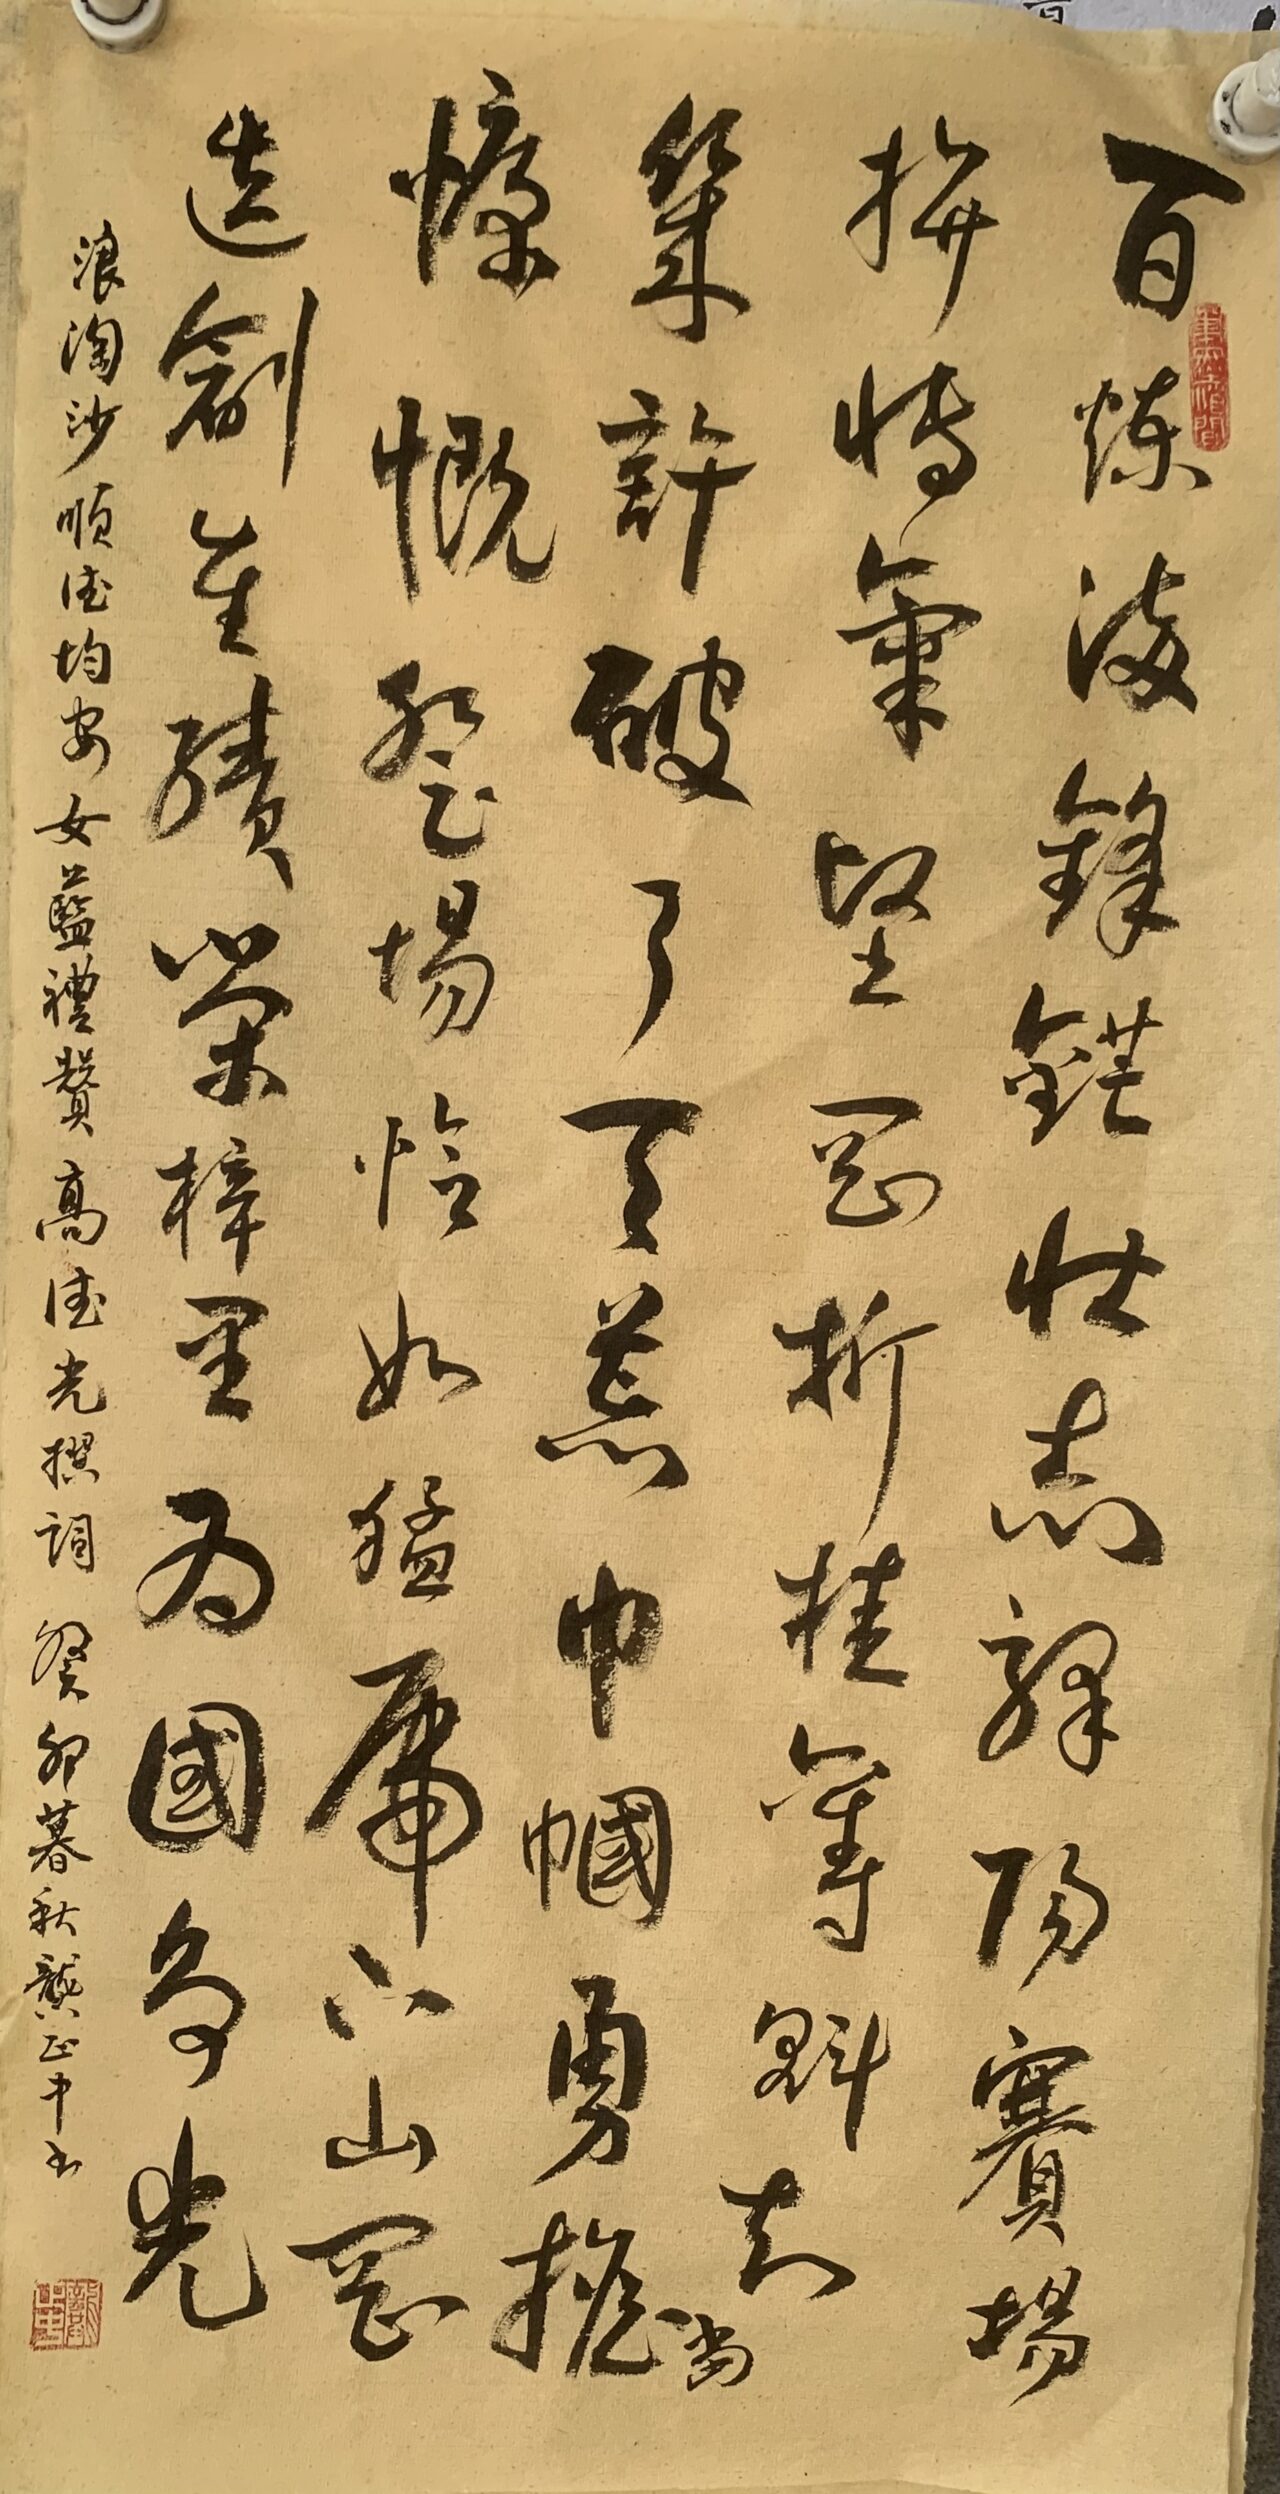 百煉鋒鋩壯志陽賽場
拚搏氣堅岡折桂奪魁
幾許破了天荒巾幗勇擔當
慷慨登場恰如猛虎下山岡
迭創佳績榮梓里為國爭光
浪淘沙順德均安女籃禮贊高德光撰詞癸卯暮秋龔正中書